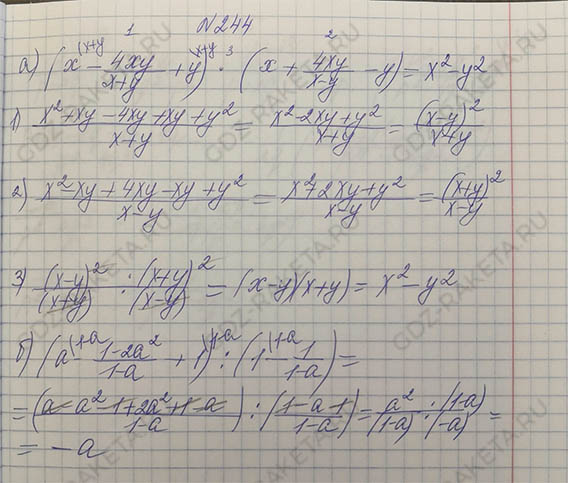 №244
1 2
а) (x^(x+y - 4xy/(x+y) + y)^(x+y :^3 (x + 4xy/(x-y) - y) = x²-y²
1) (x²+xy-4xy+xy+y²)/(x+y) = (x²-2xy+y²)/(x+y) = (x-y)²/(x+y)
2) (x²-xy+4xy-xy+y²)/(x-y) = (x²+2xy+y²)/(x-y) = (x+y)²/(x-y)
3) (x-y)²/(x+y) : (x+y)²/(x-y) = (x-y)(x+y) = x²-y²
б) (a^(1-a - (1-2a²)/(1-a) + 1)^(1-a : (1^(1-a - 1/(1-a)) =
= ((a-a²-1+2a²+1-a)/(1-a)) : ((1-a-1)/(1-a)) = a²/(1-a) · (1-a)/(-a) =
= -a
GDZ-RAKETA.RU